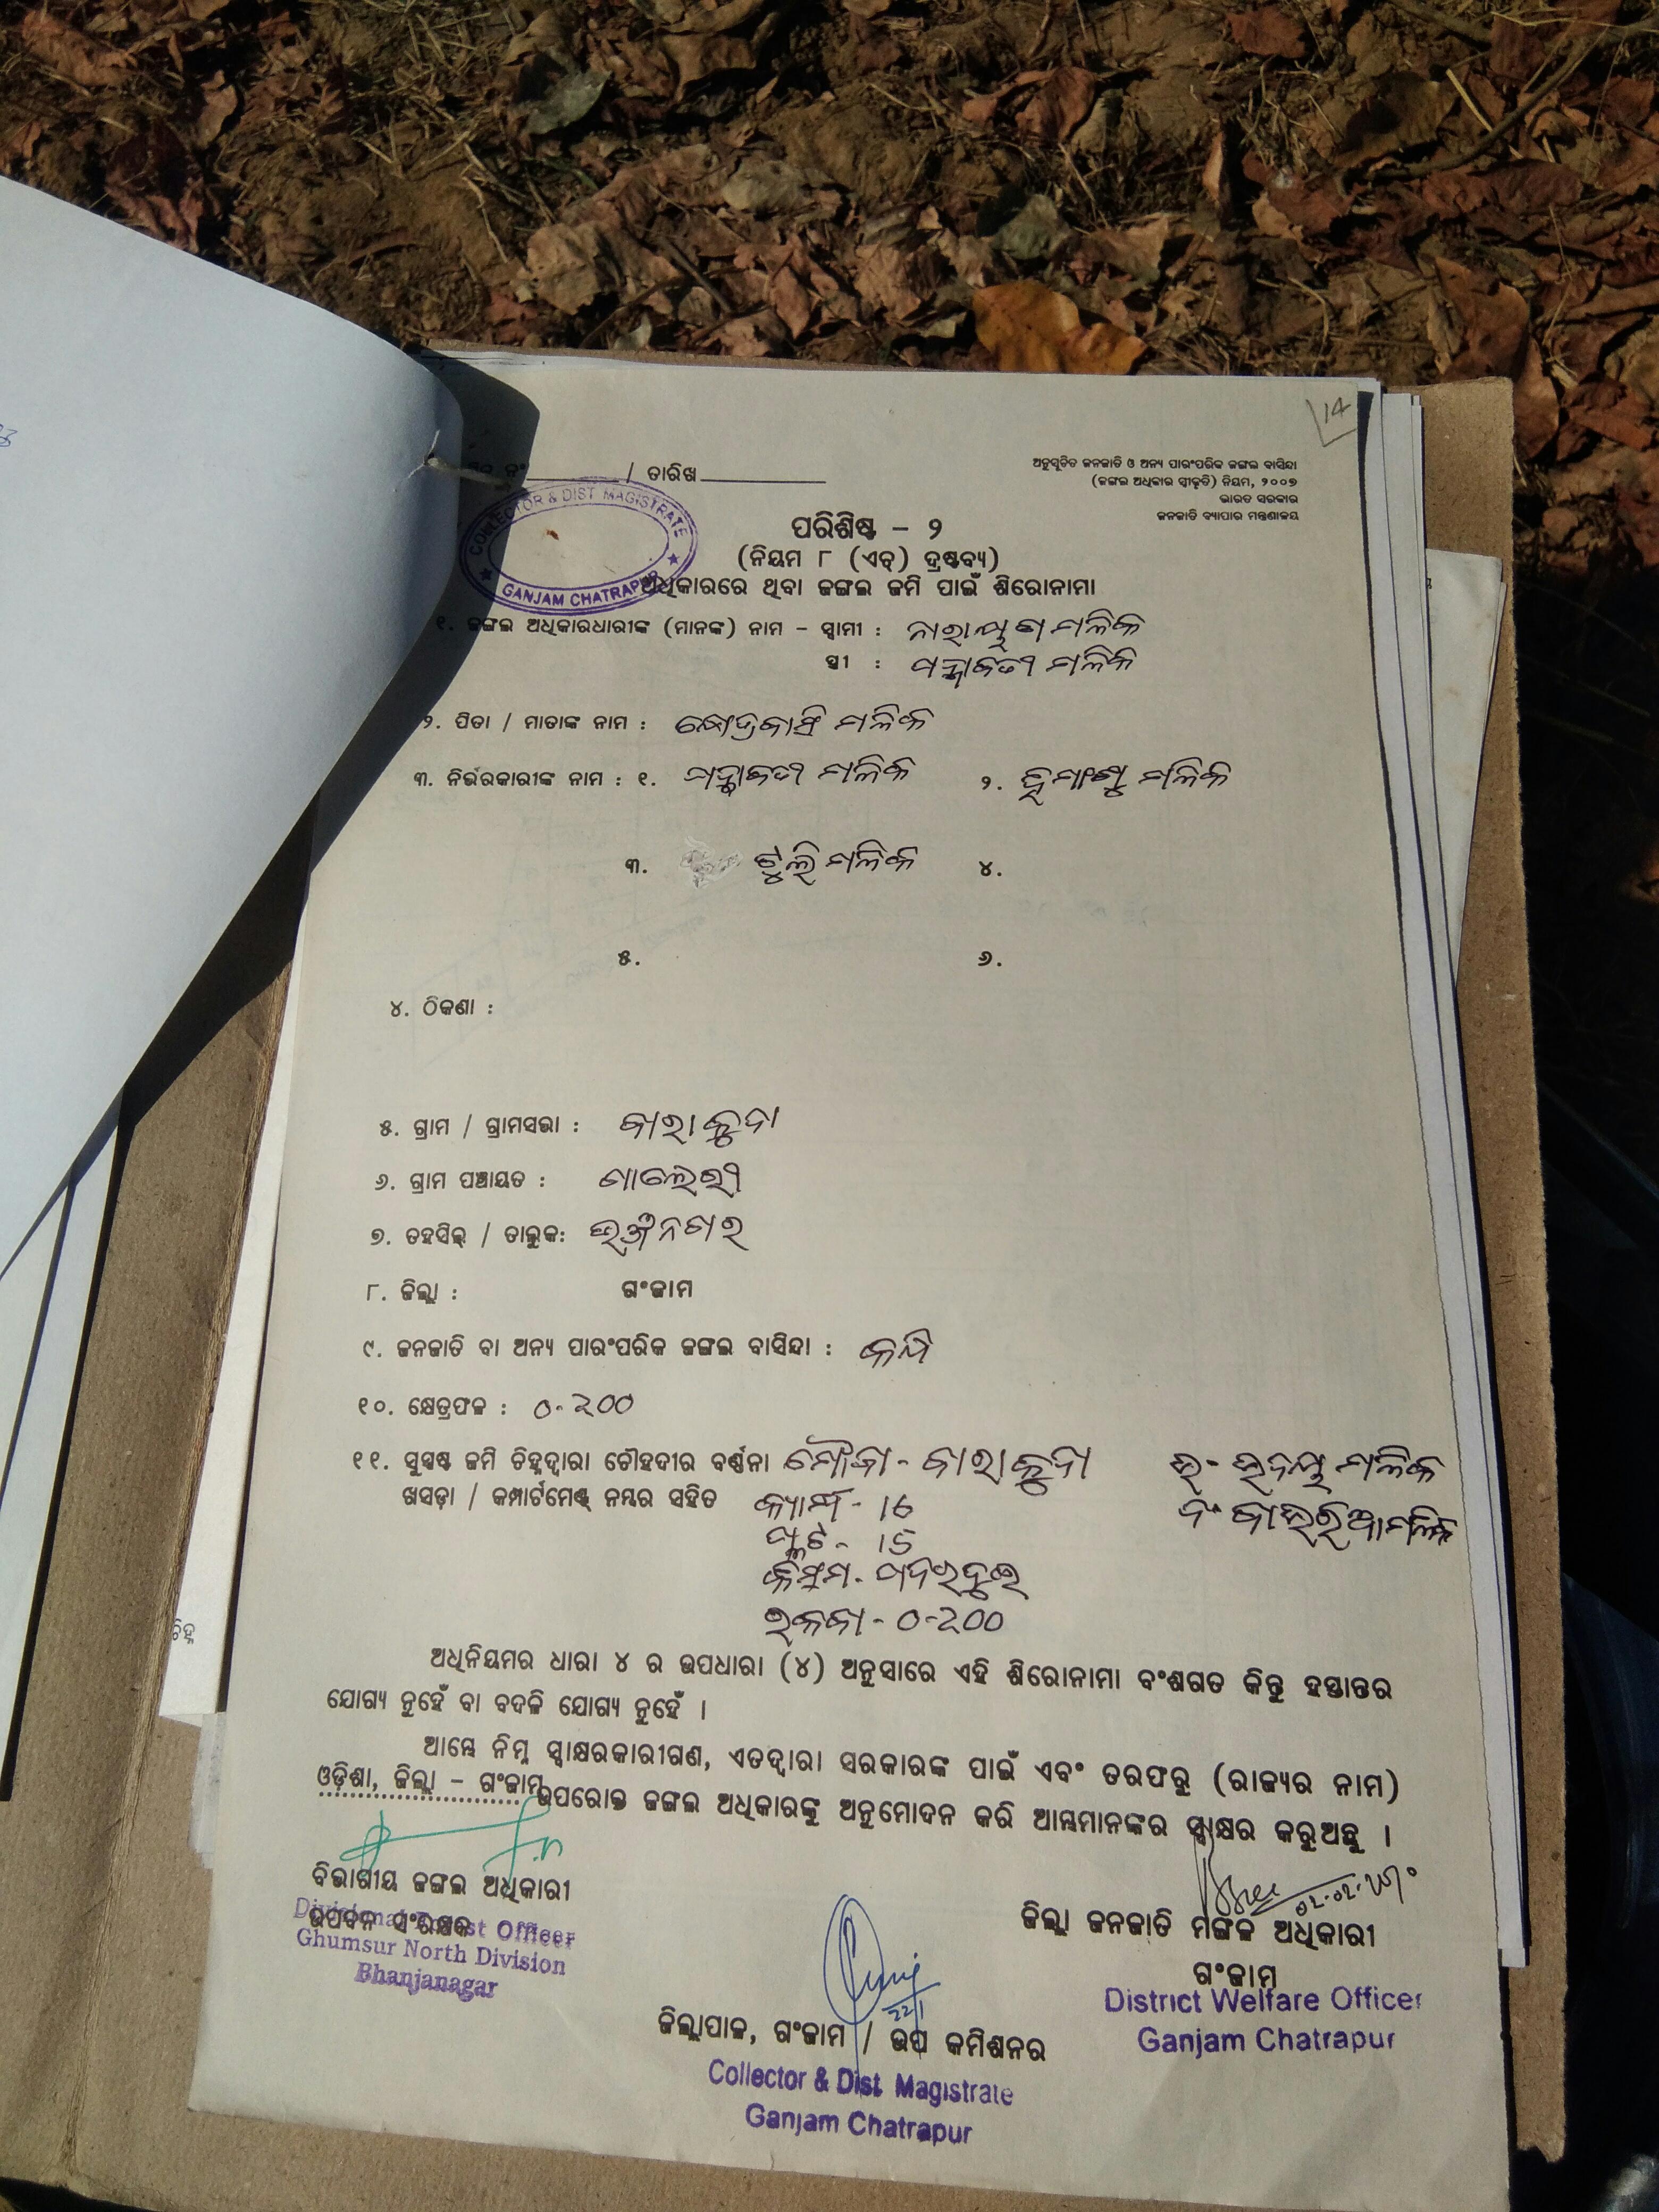 14
/ ତାରିଖ
ଅନୁସୂଚିତ ଜନଜାତି ଓ ଅନ୍ୟ ପାରଂପରିକ ଜଙ୍ଗଲ ବାସିନ୍ଦା
(ଜଙ୍ଗଲ ଅଧିକାର ସ୍ୱୀକୃତି) ନିୟମ, ୨୦୦୭
ଭାରତ ସରକାର
ଜନଜାତି ବ୍ୟାପାର ମନ୍ତ୍ରଣାଳୟ
COLLECTOR & DIST MAGISTRATE
GANJAM CHATRAPUR
ପରିଶିଷ୍ଟ - ୨
(ନିୟମ ୮ (ଏଚ୍) ଦ୍ରଷ୍ଟବ୍ୟ)
ଅଧିକାରରେ ଥିବା ଜଙ୍ଗଲ ଜମି ପାଇଁ ଶିରୋନାମା
୧. ଜଙ୍ଗଲ ଅଧିକାରଧାରୀଙ୍କ (ମାନଙ୍କ) ନାମ - ସ୍ୱାମୀ : ନାରାୟଣ ମଳିକ
ସ୍ତ୍ରୀ : ମଳିକ
୨. ପିତା / ମାତାଙ୍କ ନାମ : କ୍ଷେତ୍ରବାସି ମଳିକ
୩. ନିର୍ଭରକାରୀଙ୍କ ନାମ : ୧. ମଳିକ ୨. ମଳିକ
୩. ଟୁଲି ମଳିକ ୪.
୫. ୬.
୪. ଠିକଣା :
୫. ଗ୍ରାମ / ଗ୍ରାମସଭା : ବାରାକୁଦା
୬. ଗ୍ରାମ ପଞ୍ଚାୟତ : ଗାଲେରୀ
୭. ତହସିଲ୍ / ତାଲୁକ: ଭଞ୍ଜନଗର
୮. ଜିଲ୍ଲା : ଗଂଜାମ
୯. ଜନଜାତି ବା ଅନ୍ୟ ପାରଂପରିକ ଜଙ୍ଗଲ ବାସିନ୍ଦା :
୧୦. କ୍ଷେତ୍ରଫଳ : 0-200
୧୧. ସୁସ୍ପଷ୍ଟ ଜମି ଚିହ୍ନଦ୍ୱାରା ଚୌହଦୀର ବର୍ଣ୍ଣନା ମୌଜା - ବାରାକୁଦା ଉ- ମଳିକ
ଖସଡ଼ା / କମ୍ପାର୍ଟମେଣ୍ଟ୍ ନମ୍ବର ସହିତ 16 ମଳିକ
ପ୍ଲଟ - 15
କିସମ -
ରକବା - 0-200
ଅଧିନିୟମର ଧାରା ୪ ର ଉପଧାରା (୪) ଅନୁସାରେ ଏହି ଶିରୋନାମା ବଂଶଗତ କିନ୍ତୁ ହସ୍ତାନ୍ତର
ଯୋଗ୍ୟ ନୁହେଁ ବା ବଦଳି ଯୋଗ୍ୟ ନୁହେଁ ।
ଆମ୍ଭେ ନିମ୍ନ ସ୍ୱାକ୍ଷରକାରୀଗଣ, ଏତଦ୍ୱାରା ସରକାରଙ୍କ ପାଇଁ ଏବଂ ତରଫରୁ (ରାଜ୍ୟର ନାମ)
ଓଡ଼ିଶା, ଜିଲ୍ଲା - ଗଂଜାମ ଉପରୋକ୍ତ ଜଙ୍ଗଲ ଅଧିକାରଙ୍କୁ ଅନୁମୋଦନ କରି ଆମ୍ଭମାନଙ୍କର ସ୍ୱାକ୍ଷର କରୁଅଛୁ ।
ବିଭାଗୀୟ ଜଙ୍ଗଲ ଅଧିକାରୀ
ଉପବନ ସଂରକ୍ଷକ
Divisional Forest Officer
Ghumsur North Division
Bhanjanagar
22/1
ଜିଲ୍ଲାପାଳ, ଗଂଜାମ / ଉପ କମିଶନର
Collector & Dist. Magistrate
Ganjam Chatrapur
ଜିଲ୍ଲା ଜନଜାତି ମଙ୍ଗଳ ଅଧିକାରୀ
ଗଂଜାମ
District Welfare Officer
Ganjam Chatrapur